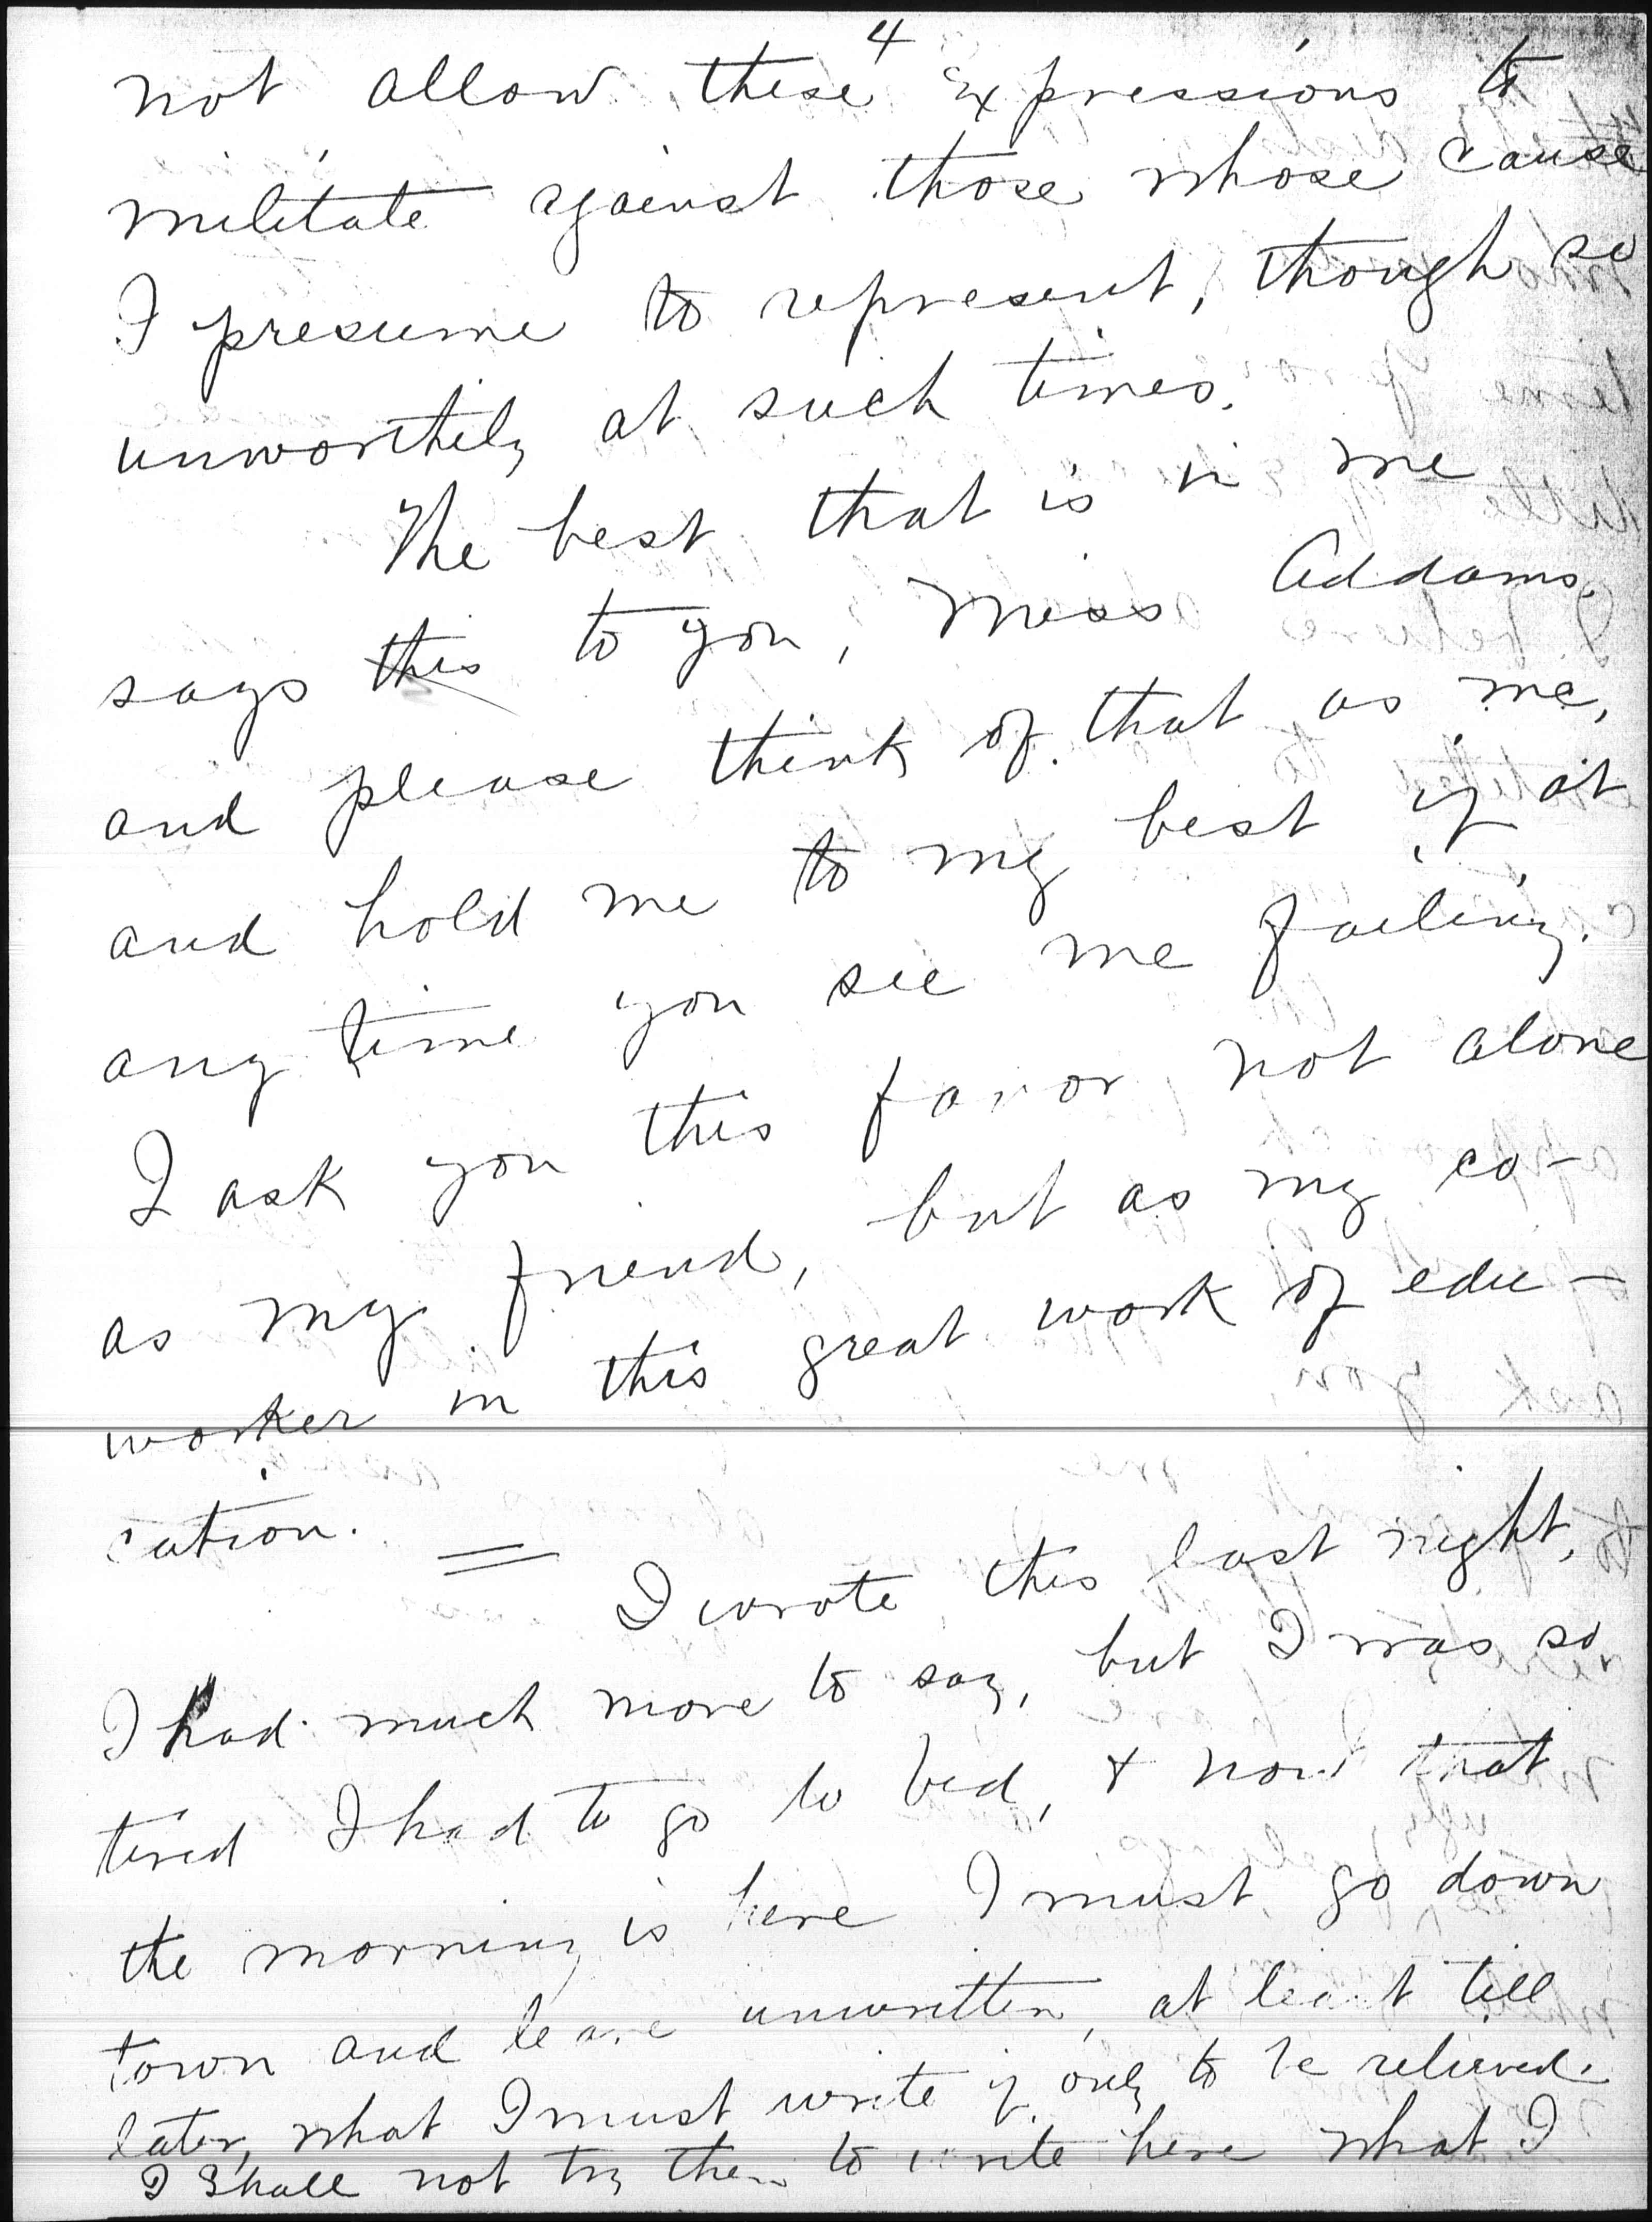 4
not allow these expressions to
militate against those whose cause
I presume to represent, though so
unworthily at such times.
The best that is in me
says this to you, Miss Addams,
and please think of that as me,
and hold me to my best if at
any time you see me failing.
I ask you this favor not alone
as my friend, but as my co-
worker in this great work of edu-
cation.
I wrote this last night,
I had much more to say, but I was so
tired I had to go to bed, & now that
the morning is here I must go down
town and leave unwritten, at least till
later, what I must write if only to be relieved.
I shall not try then to write here what I